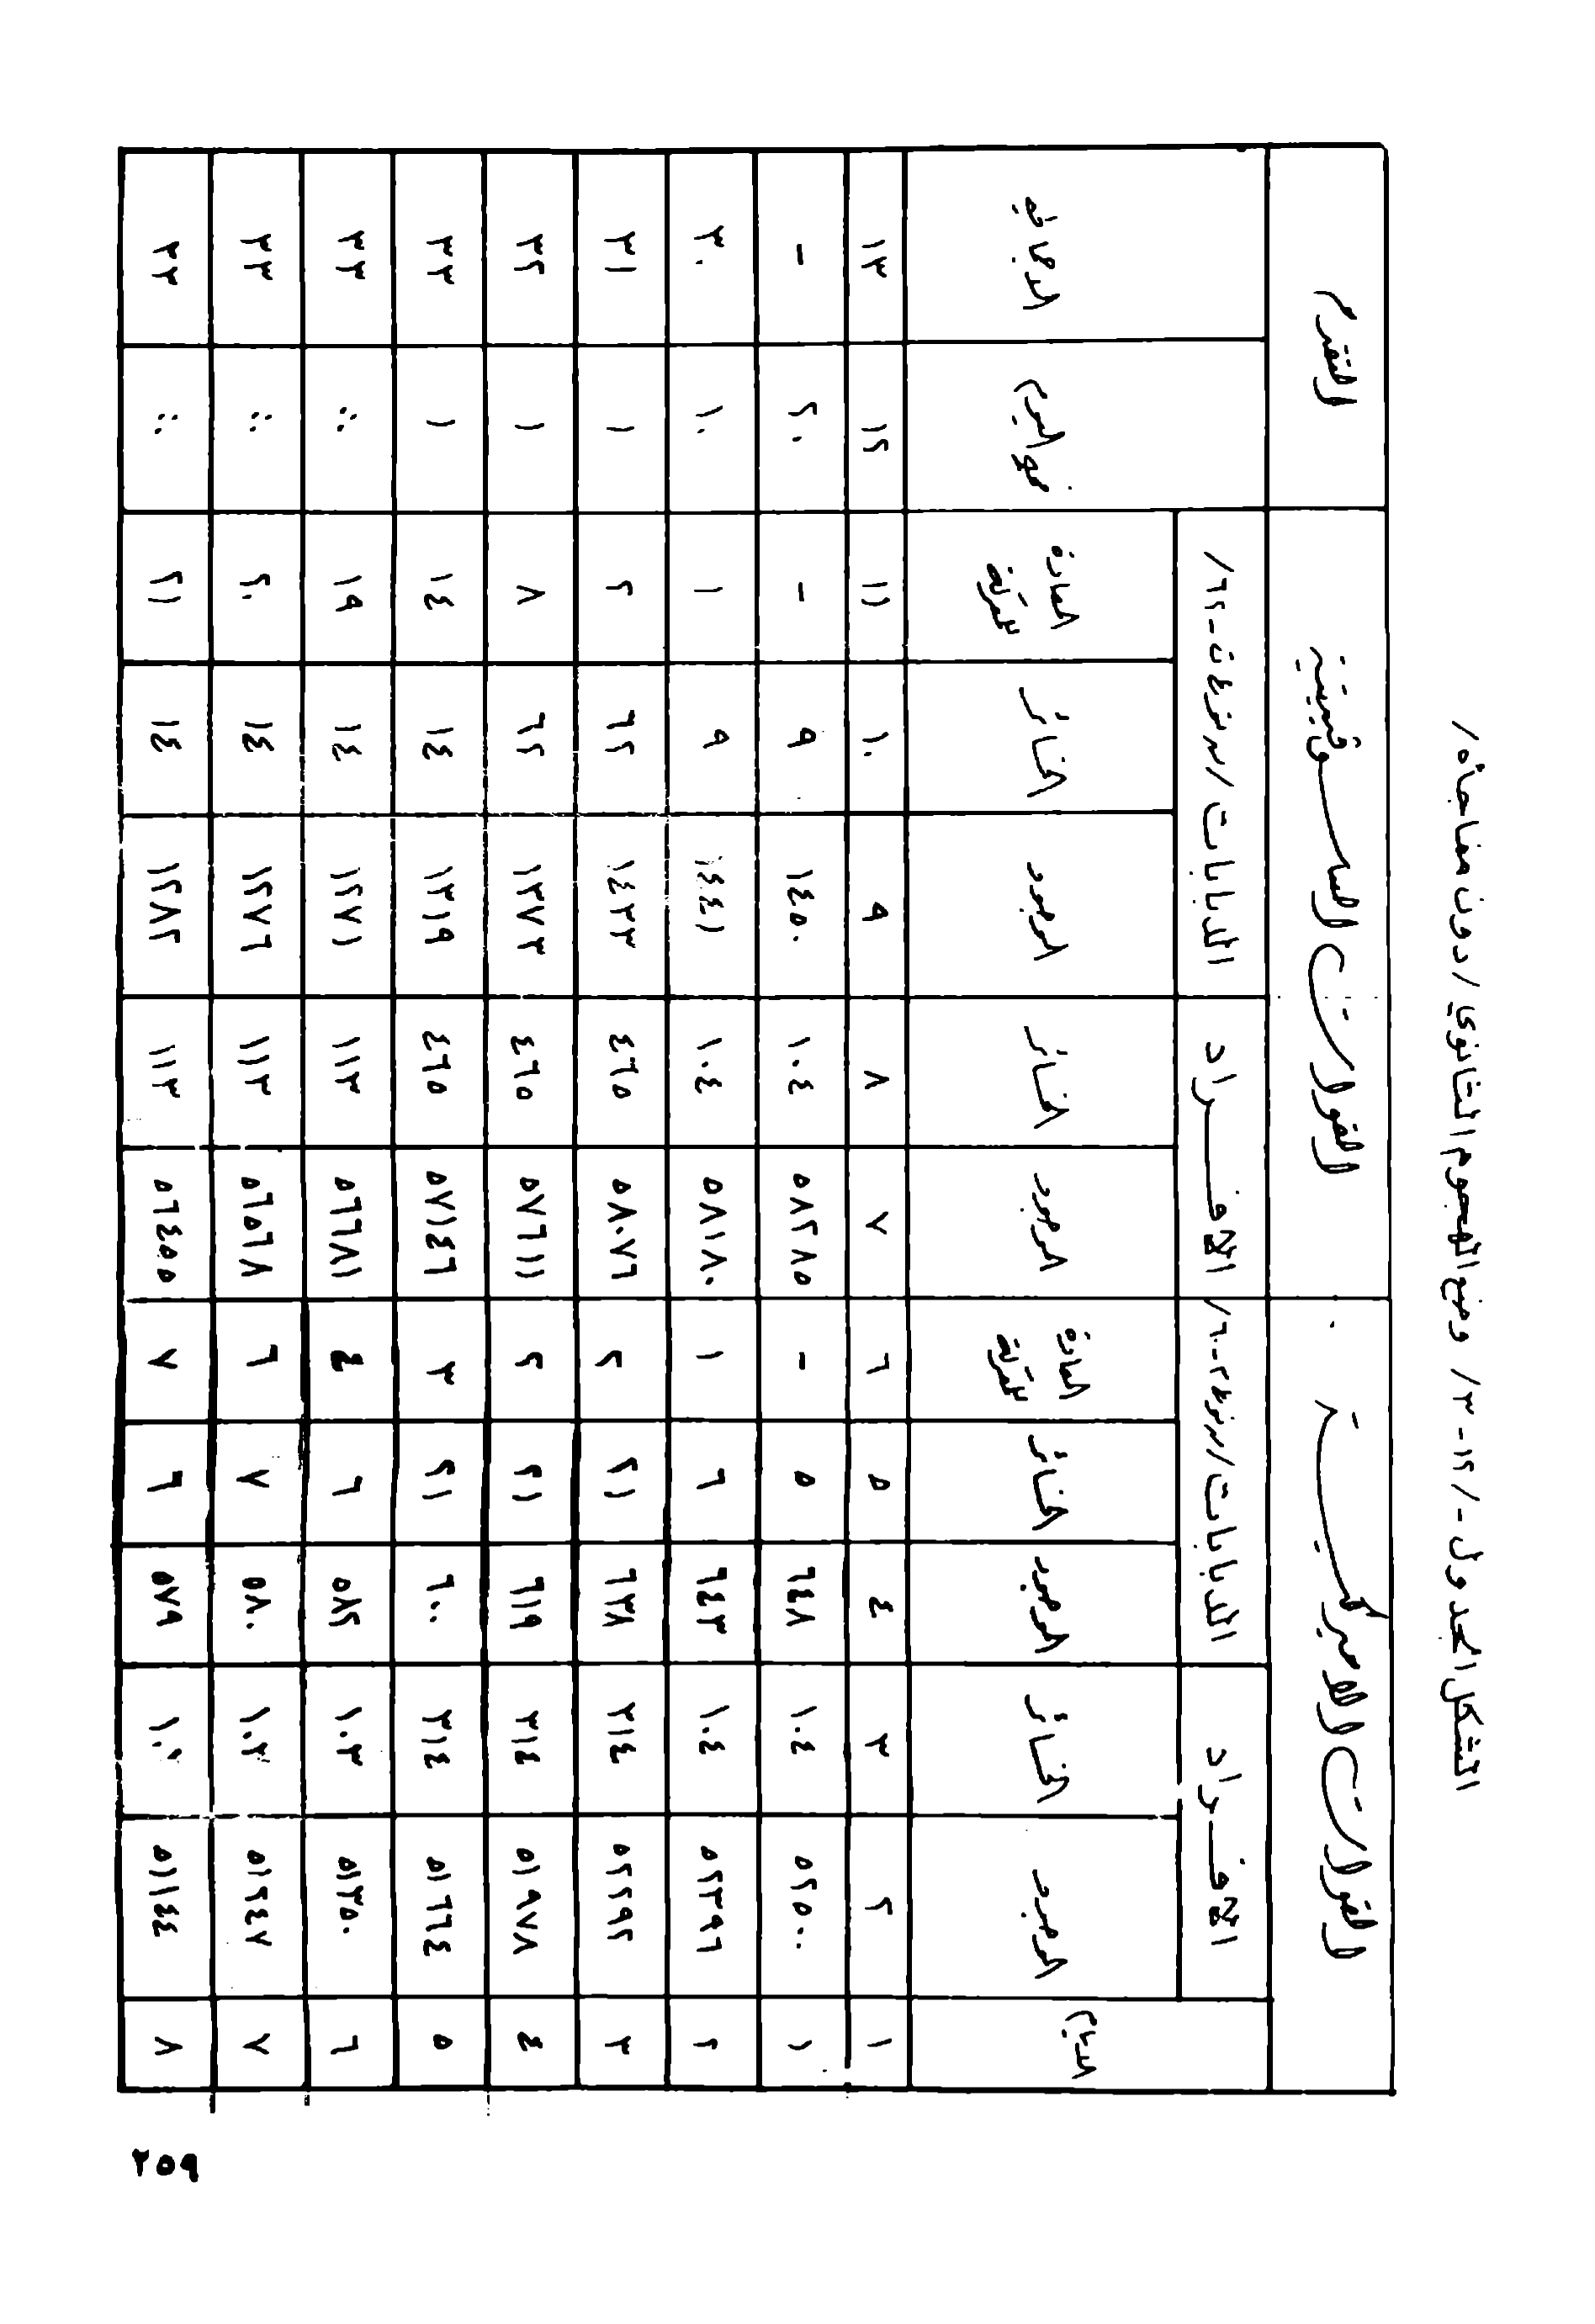 الشكل الجدولي - /١٢-٣/ وضع الهجوم الثانوي /دون مفاجأة/
القوات الاميركيـــة القوات السوفييتية التقدم
الأفــراد الدبابات /من نوع م-٦٠/ الأفــراد الدبابات /من نوع ت-٦٢/
الايام الموجود الخسائر الموجود الخسائر المعادة للمعركة الموجود الخسائر الموجود الخسائر المعادة للمعركة اليوم
١ ٢ ٣ ٤ ٥ ٦ ٧ ٨ ٩ ١٠ ١١ ١٢ ١٣
١ ٥٢٥٠٠ ١٠٤ ٦٤٨ ٥ - ٥٨٢٨٥ ١٠٤ ١٤٥٠ ٩ - ٢٠ -
٢ ٥٢٣٩٦ ١٠٤ ٦٤٣ ٦ ١ ٥٨١٨٠ ١٠٤ ١٤٤١ ٩ ١ ١٠ ٣٠
٣ ٥٢٢٩٢ ٣١٤ ٦٣٨ ٢١ ٢ ٥٨٠٧٦ ٤٦٥ ١٤٣٣ ٦٢ ٢ ١ ٣١
٤ ٥١٩٧٨ ٣١٤ ٦١٩ ٢١ ٢ ٥٧٦١١ ٤٦٥ ١٣٧٣ ٦٢ ٨ ١ ٣٢
٥ ٥١٦٦٤ ٣١٤ ٦٠٠ ٢١ ٣ ٥٧١٤٦ ٤٦٥ ١٣١٩ ١٤ ١٤ ١ ٣٣
٦ ٥١٣٥٠ ١٠٣ ٥٨٢ ٦ ٤ ٥٦٦٨١ ١١٣ ١٢٧١ ١٤ ١٩ ٣٣
٧ ٥١٢٤٧ ١٠٣ ٥٨٠ ٧ ٦ ٥٦٥٦٨ ١١٣ ١٢٧٦ ١٤ ٢٠ ٣٣
٨ ٥١١٤٤ ٥٧٩ ٦ ٧ ٥٦٤٥٥ ١١٣ ١٢٨٢ ١٤ ٢١ ٣٣
٢٥٩